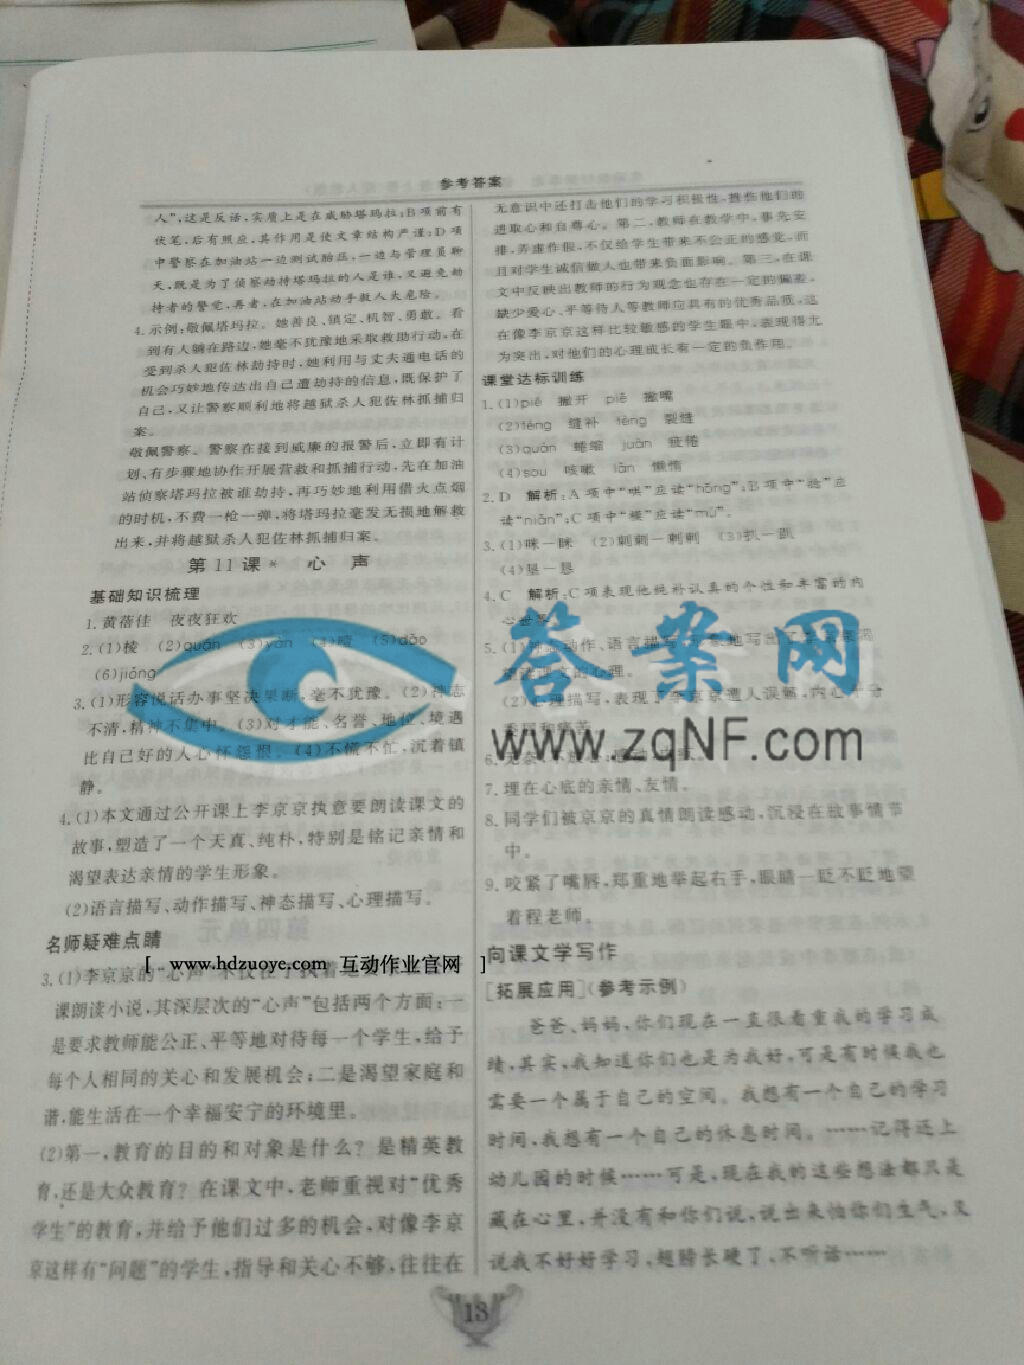 参考答案
人”,这是反话,实质上是在威胁塔玛拉;B项前有
伏笔,后有照应,其作用是使文章结构严谨;D项
中警察在加油站一边测试胎压,一边与管理员聊
天,既是为了侦察劫持塔玛拉的人是谁,又避免劫
持者的警觉,再者,在加油站动手敌人太危险。
4.示例:敬佩塔玛拉。她善良、镇定、机智、勇敢。看
到有人躺在路边,她毫不犹豫地采取救助行动,在
受到杀人犯佐林劫持时,她利用与丈夫通电话的
机会巧妙地传达出自己遭劫持的信息,既保护了
自己,又让警察顺利地将越狱杀人犯佐林抓捕归
案。
敬佩警察。警察在接到威廉的报警后,立即有计
划、有步骤地协作开展营救和抓捕行动,先在加油
站侦察塔玛拉被谁劫持,再巧妙地利用借火点烟
的时机,不费一枪一弹,将塔玛拉毫发无损地解救
出来,并将越狱杀人犯佐林抓捕归案。
第11课* 心 声
基础知识梳理
1.黄蓓佳 夜夜狂欢
2.(1)棱 (2)quán (3)yàn (4)暄 (5)dāo
(6)jiǒng
3.(1)形容说话办事坚决果断,毫不犹豫。(2)神志
不清,精神不集中。(3)对才能、名誉、地位、境遇
比自己好的人心怀怨恨。(4)不慌不忙,沉着镇
静。
4.(1)本文通过公开课上李京京执意要朗读课文的
故事,塑造了一个天真、纯朴,特别是铭记亲情和
渴望表达亲情的学生形象。
(2)语言描写、动作描写、神态描写、心理描写。
名师疑难点睛
[ www.hdzuoye.com 互动作业官网 ]
3.(1)李京京的“心声”不仅在于执着
课朗读小说,其深层次的“心声”包括两个方面:一
是要求教师能公正、平等地对待每一个学生,给予
每个人相同的关心和发展机会;二是渴望家庭和
谐,能生活在一个幸福安宁的环境里。
(2)第一,教育的目的和对象是什么?是精英教
育,还是大众教育?在课文中,老师重视对“优秀
学生”的教育,并给予他们过多的机会,对像李京
京这样有“问题”的学生,指导和关心不够,往往在
无意识中还打击他们的学习积极性,挫伤他们的
进取心和自尊心。第二,教师在教学中,事先安
排,弄虚作假,不仅给学生带来不公正的感觉,而
且对学生诚信做人也带来负面影响。第三,在课
文中反映出教师的行为观念也存在一定的偏差,
缺少爱心、平等待人等教师应具有的优秀品质,这
在像李京京这样比较敏感的学生眼中,表现得尤
为突出,对他们的心理成长有一定的负作用。
课堂达标训练
1.(1)piē 撇开 piě 撇嘴
(2)féng 缝补 fèng 裂缝
(3)quán 蜷缩 juàn 疲倦
(4)sou 咳嗽 lǎn 懒惰
2.D 解析:A项中“哄”应读“hōng”;B项中“捻”应
读“niǎn”;C项中“模”应读“mú”。
3.(1)咪—眯 (2)刺刺—喇喇 (3)扒—趴
(4)垦—恳
4.C 解析:C项表现他纯朴认真的个性和丰富的内
心世界。
5.(1)神态、动作、语言描写,形象地写出了李京京渴
望读课文的心理。
(2)心理描写,表现了李京京遭人误解,内心十分
委屈和痛苦。
答案网
www.zqNF.com
7.埋在心底的亲情、友情。
8.同学们被京京的真情朗读感动,沉浸在故事情节
中。
9.咬紧了嘴唇,郑重地举起右手,眼睛一眨不眨地望
着程老师。
向课文学写作
[拓展应用](参考示例)
爸爸、妈妈,你们现在一直很看重我的学习成
绩,其实,我知道你们也是为我好,可是有时候我也
需要一个属于自己的空间。我想有一个自己的学习
时间,我想有一个自己的休息时间。……记得还上
幼儿园的时候……可是,现在我的这些想法都只是
藏在心里,并没有和你们说,说出来怕你们生气,又
说我不好好学习,翅膀长硬了,不听话……
13